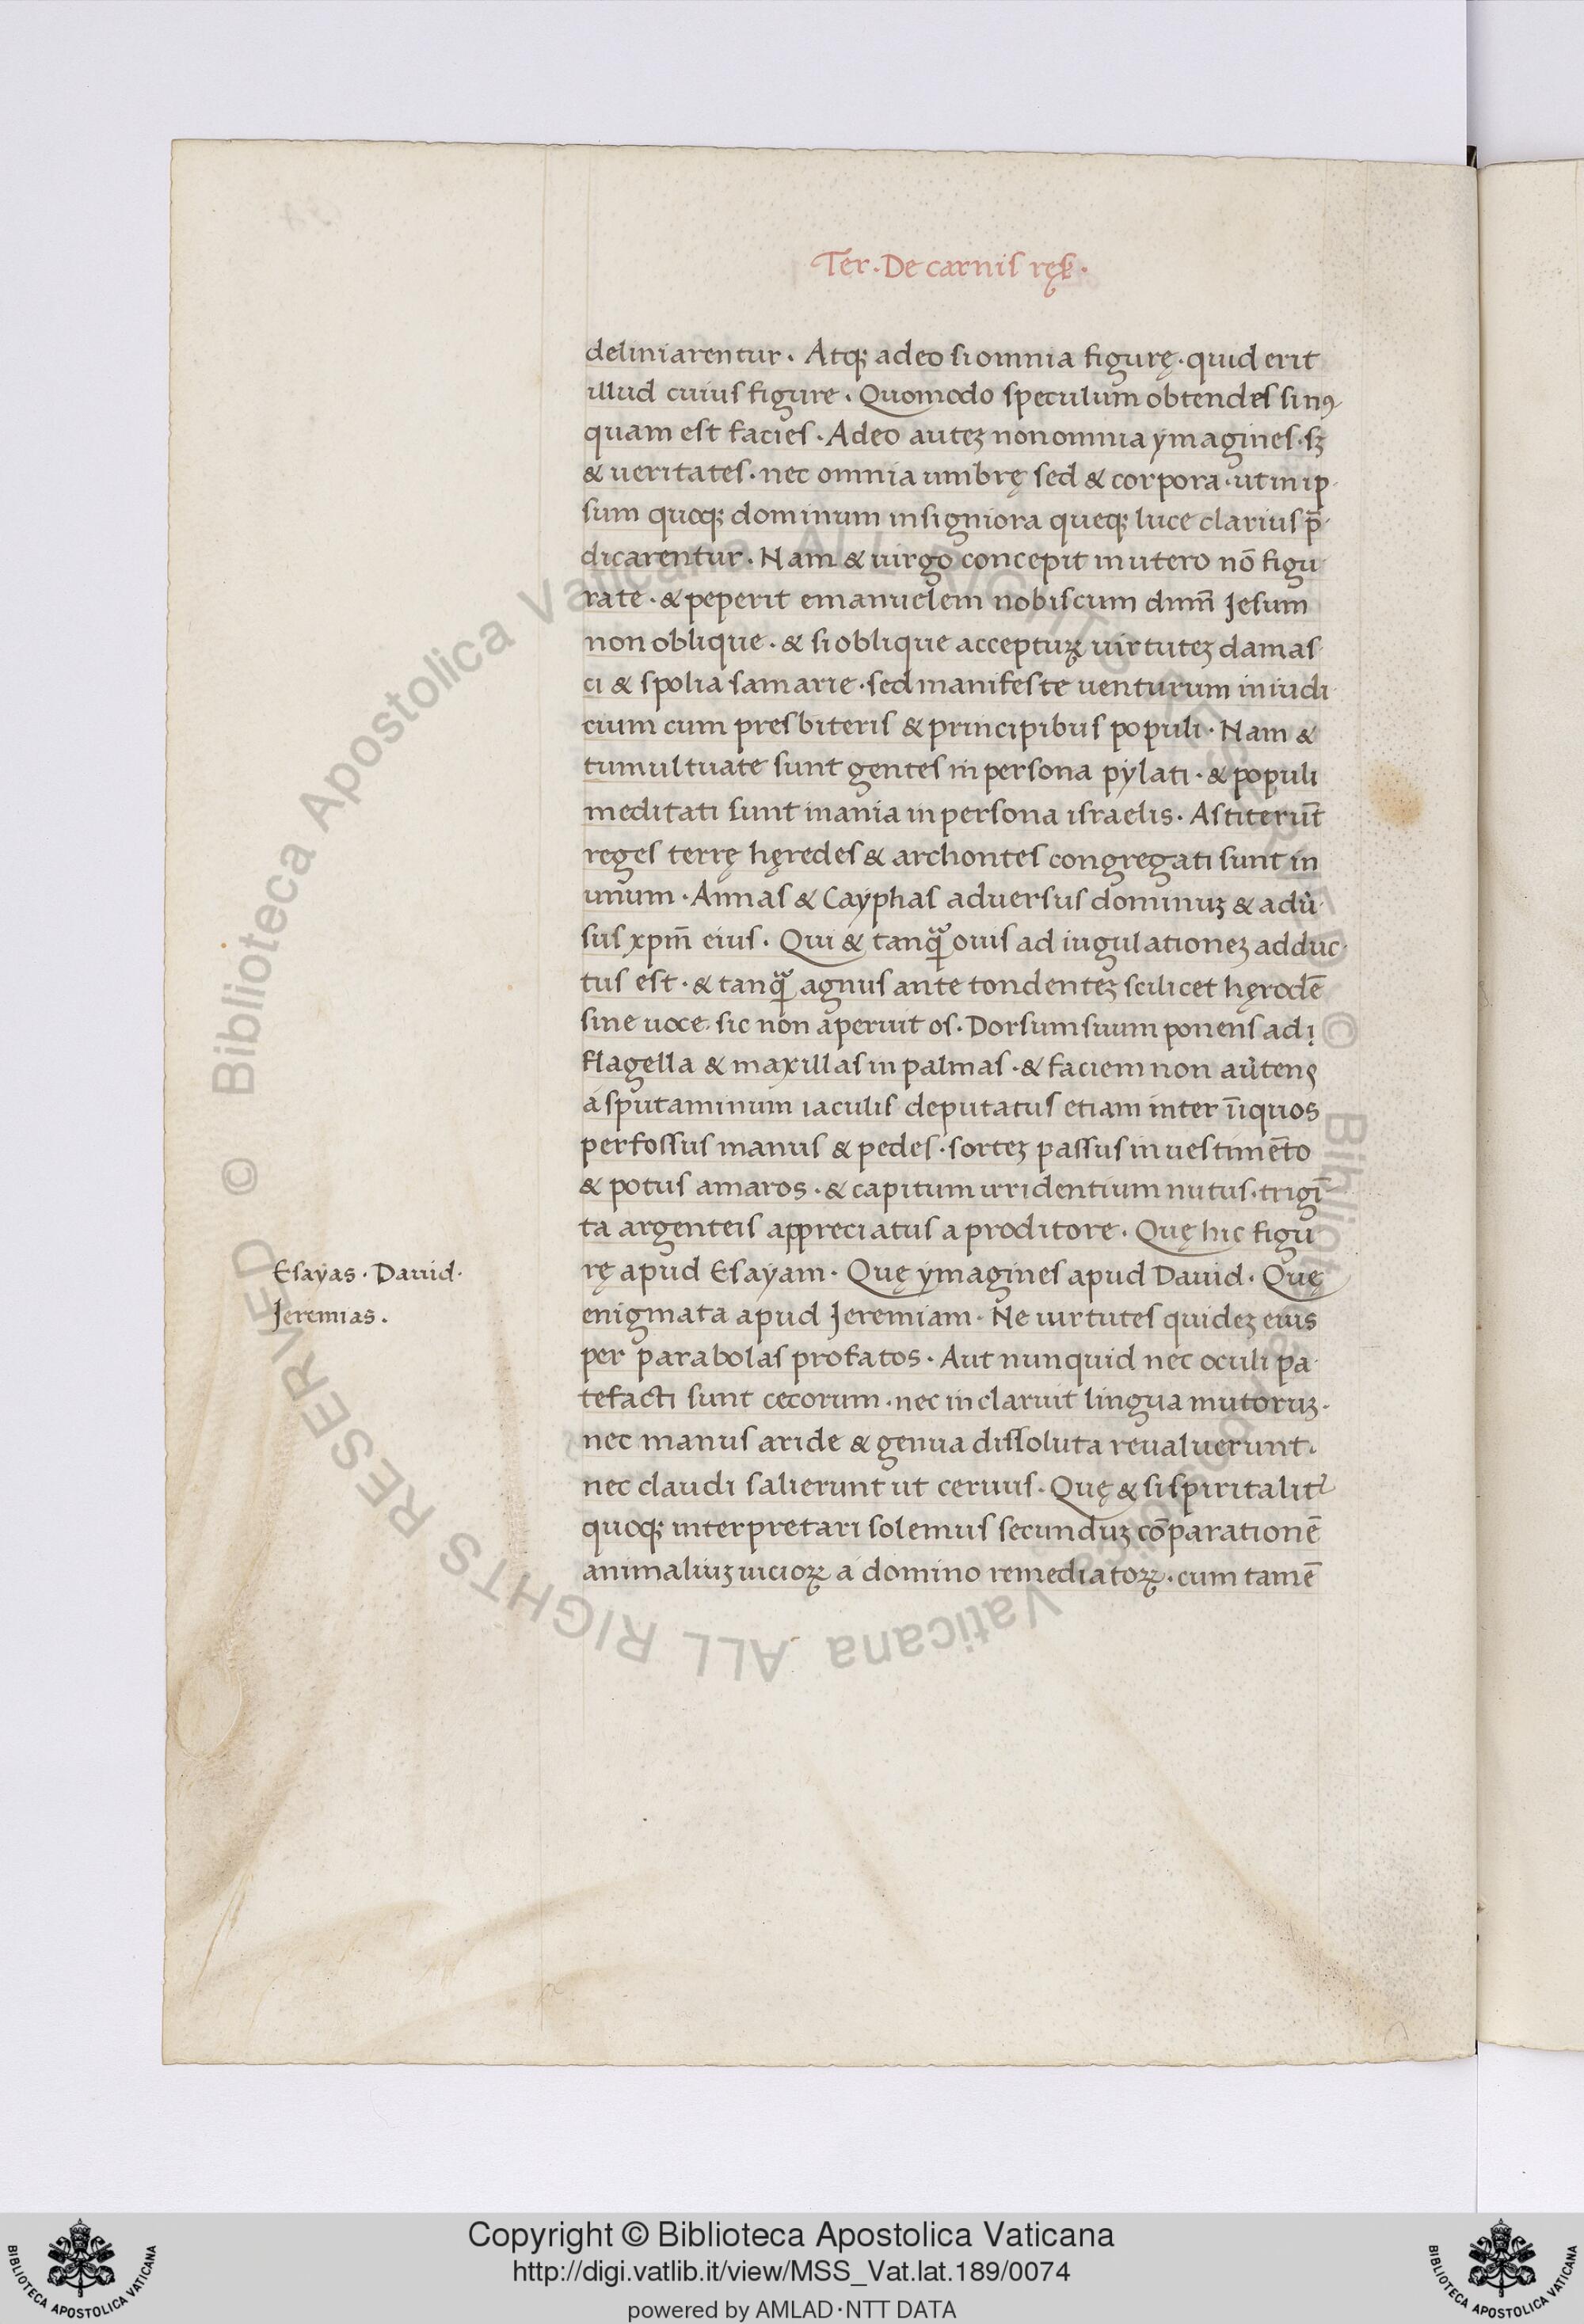 Ter. De carnis ręs.
deliniarentur. Atqꝫ adeo si omnia figurę. quid erit
illud cuius figure. Quomodo speculum obtendes si nus
quam est facies. Adeo auteꝫ non omnia ymagines. sꝫ
& ueritates. nec omnia umbrę sed & corpora. ut in ip
sum quoqꝫ dominum insigniora queqꝫ luce clarius p̄
dicarentur. Nam & uirgo concepit in utero nō figu
rate. & peperit emanuelem nobiscum dn̄m Jesum
non oblique. & si oblique accepturꝫ uirtuteꝫ damas
ci & spolia samarie. sed manifeste uenturum in iudi
cium cum presbiteris & principibus populi. Nam &
tumultuate sunt gentes in persona pylati. & populi
meditati sunt inania in persona israelis. Astiterūt
reges terrę hęredes & archontes congregati sunt in
unum. Annas & Cayphas aduersus dominuꝫ & adu̇
sus xpm̄ eius. Qui & tanqꝫ ouis ad iugulationeꝫ adduc
tus est. & tanqꝫ agnus ante tondenteꝫ scilicet hęrodē
sine uoce. sic non aperuit os. Dorsum suum ponens ad
flagella & maxillas in palmas. & faciem non au̇tens
a sputaminum iaculis deputatus etiam inter iīquos
perfossus manus & pedes. sorteꝫ passus in uestimēto
& potus amaros. & capitum irridentium nutus. trigī
ta argenteis appreciatus a proditore. Quę hic figu
rę apud Esayam. Quę ymagines apud Dauid. Quę
enigmata apud Jeremiam. Ne uirtutes quideꝫ eius
per parabolas profatos. Aut nunquid nec oculi pa
tefacti sunt cecorum. nec inclaruit lingua mutoruꝫ.
nec manus aride & genua dissoluta reualuerunt.
nec claudi salierunt ut ceruus. Quę & si spiritalit̄
quoqꝫ interpretari solemus secunduꝫ cōparationē
animaliuꝫ uicioꝝ a domino remediatoꝝ. cum tamē
Esayas. Dauid.
Jeremias.
© Biblioteca Apostolica Vaticana ALL RIGHTS RESERVED
© Biblioteca Apostolica Vaticana ALL RIGHTS RESERVED
Copyright © Biblioteca Apostolica Vaticana
http://digi.vatlib.it/view/MSS_Vat.lat.189/0074
powered by AMLAD·NTT DATA
BIBLIOTECA APOSTOLICA VATICANA
BIBLIOTECA APOSTOLICA VATICANA